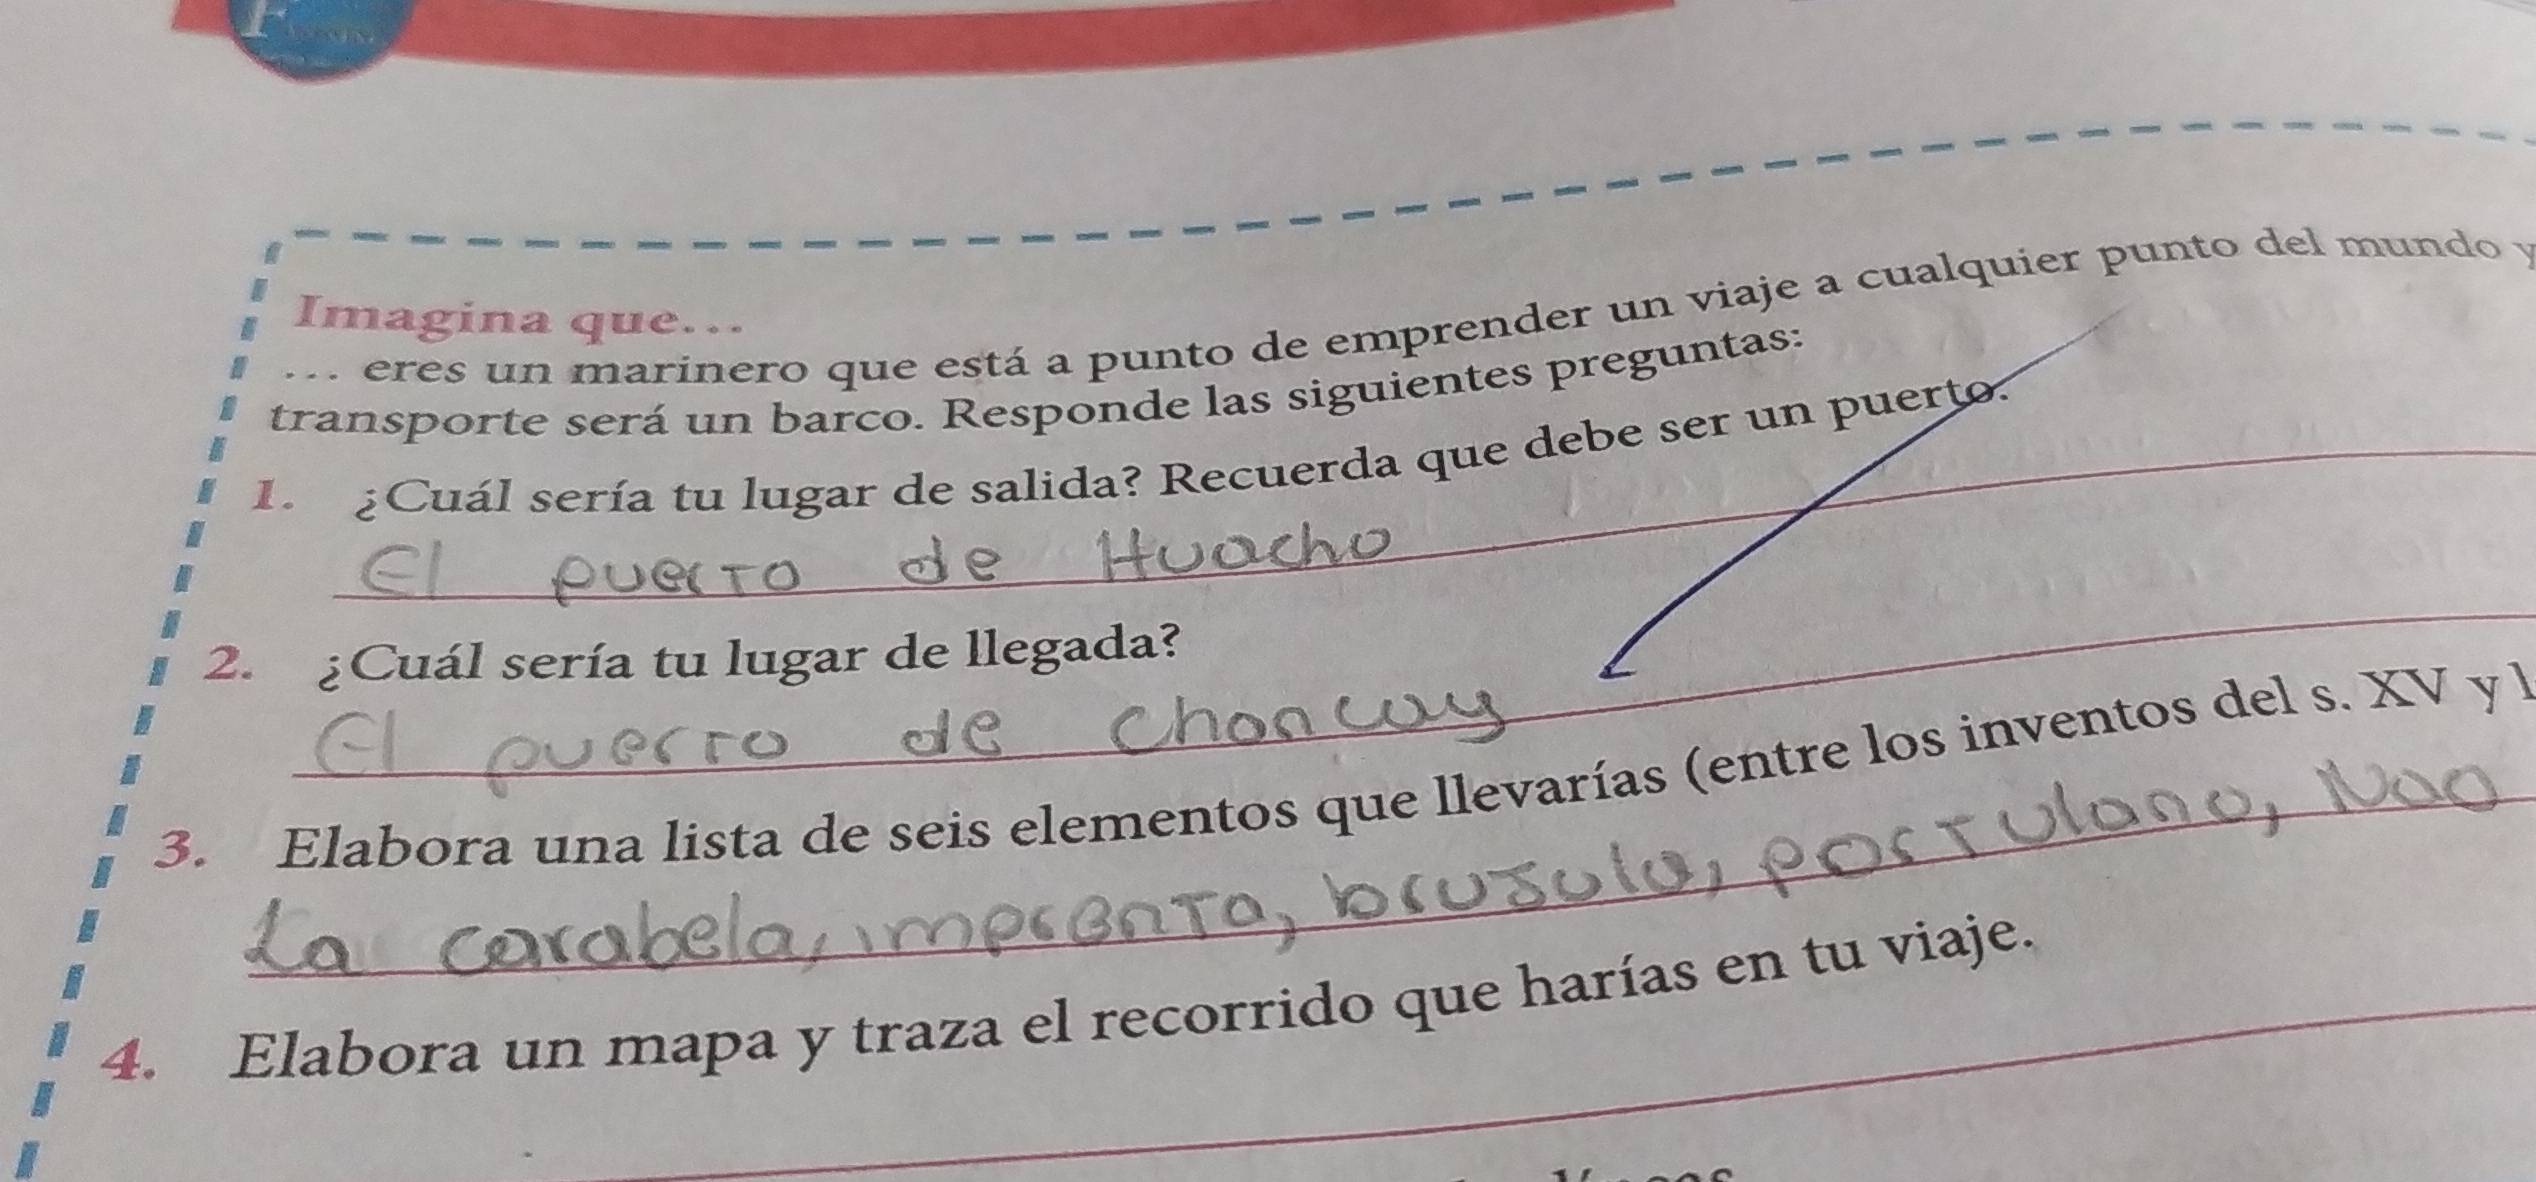 Imagina que...
... eres un marinero que está a punto de emprender un viaje a cualquier punto del mundo y
transporte será un barco. Responde las siguientes preguntas:
1. ¿Cuál sería tu lugar de salida? Recuerda que debe ser un puerto.
El puerto de Huacho
2. ¿Cuál sería tu lugar de llegada?
El puerto de Chancay
3. Elabora una lista de seis elementos que llevarías (entre los inventos del s. XV y l
La carabela, imprenta, brujula, portulano, Nao
4. Elabora un mapa y traza el recorrido que harías en tu viaje.